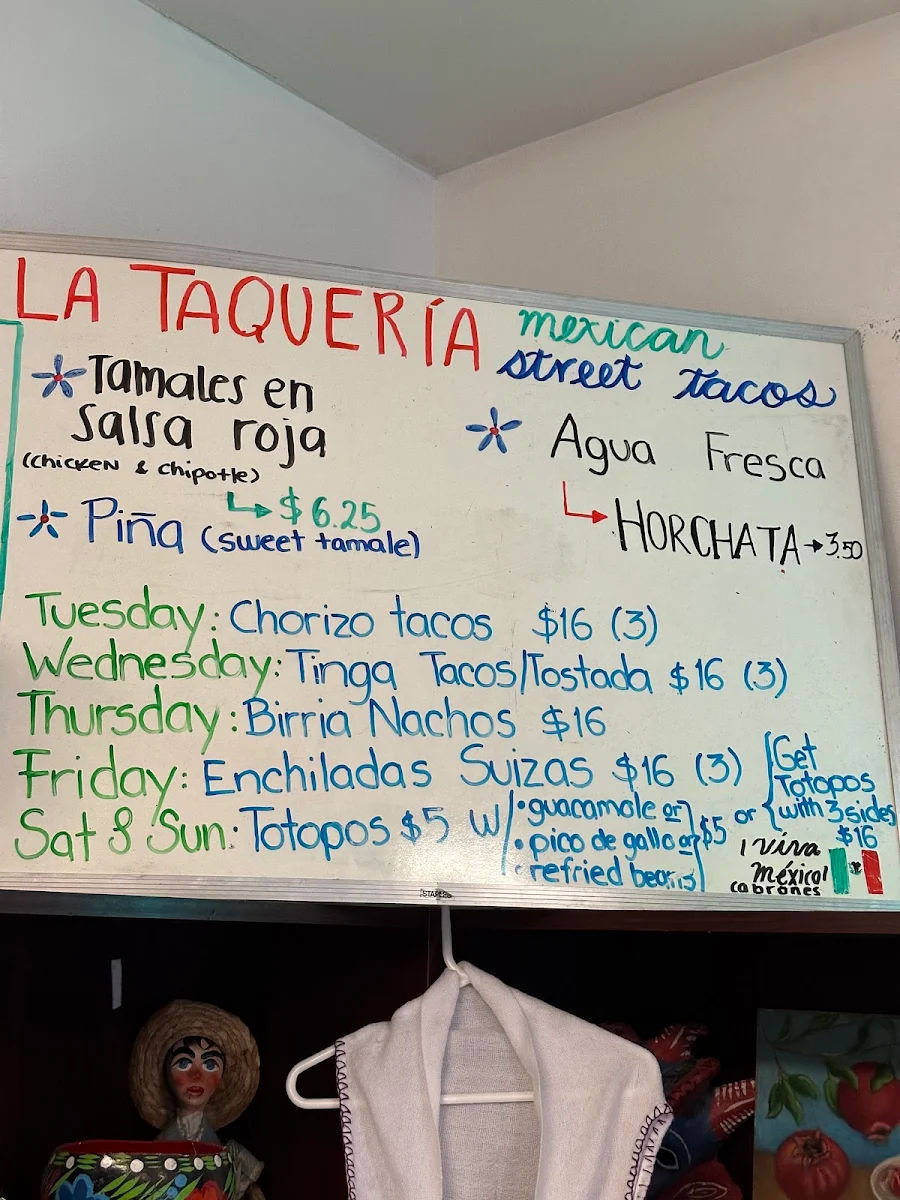 LA TAQUERÍA mexican
street tacos
Tamales en
salsa roja
(chicken & chipotle)
$6.25
Piña (sweet tamale)
Agua Fresca
HORCHATA → 3.50
Tuesday: Chorizo tacos $16 (3)
Wednesday: Tinga Tacos/Tostada $16 (3)
Thursday: Birria Nachos $16
Friday: Enchiladas Suizas $16 (3)
Sat & Sun: Totopos $5 w/
• guacamole or
• pico de gallo or
• refried beans
$5 or
Get
Totopos
with 3 sides
$16
¡Viva
México!
cabrones
STAPLES